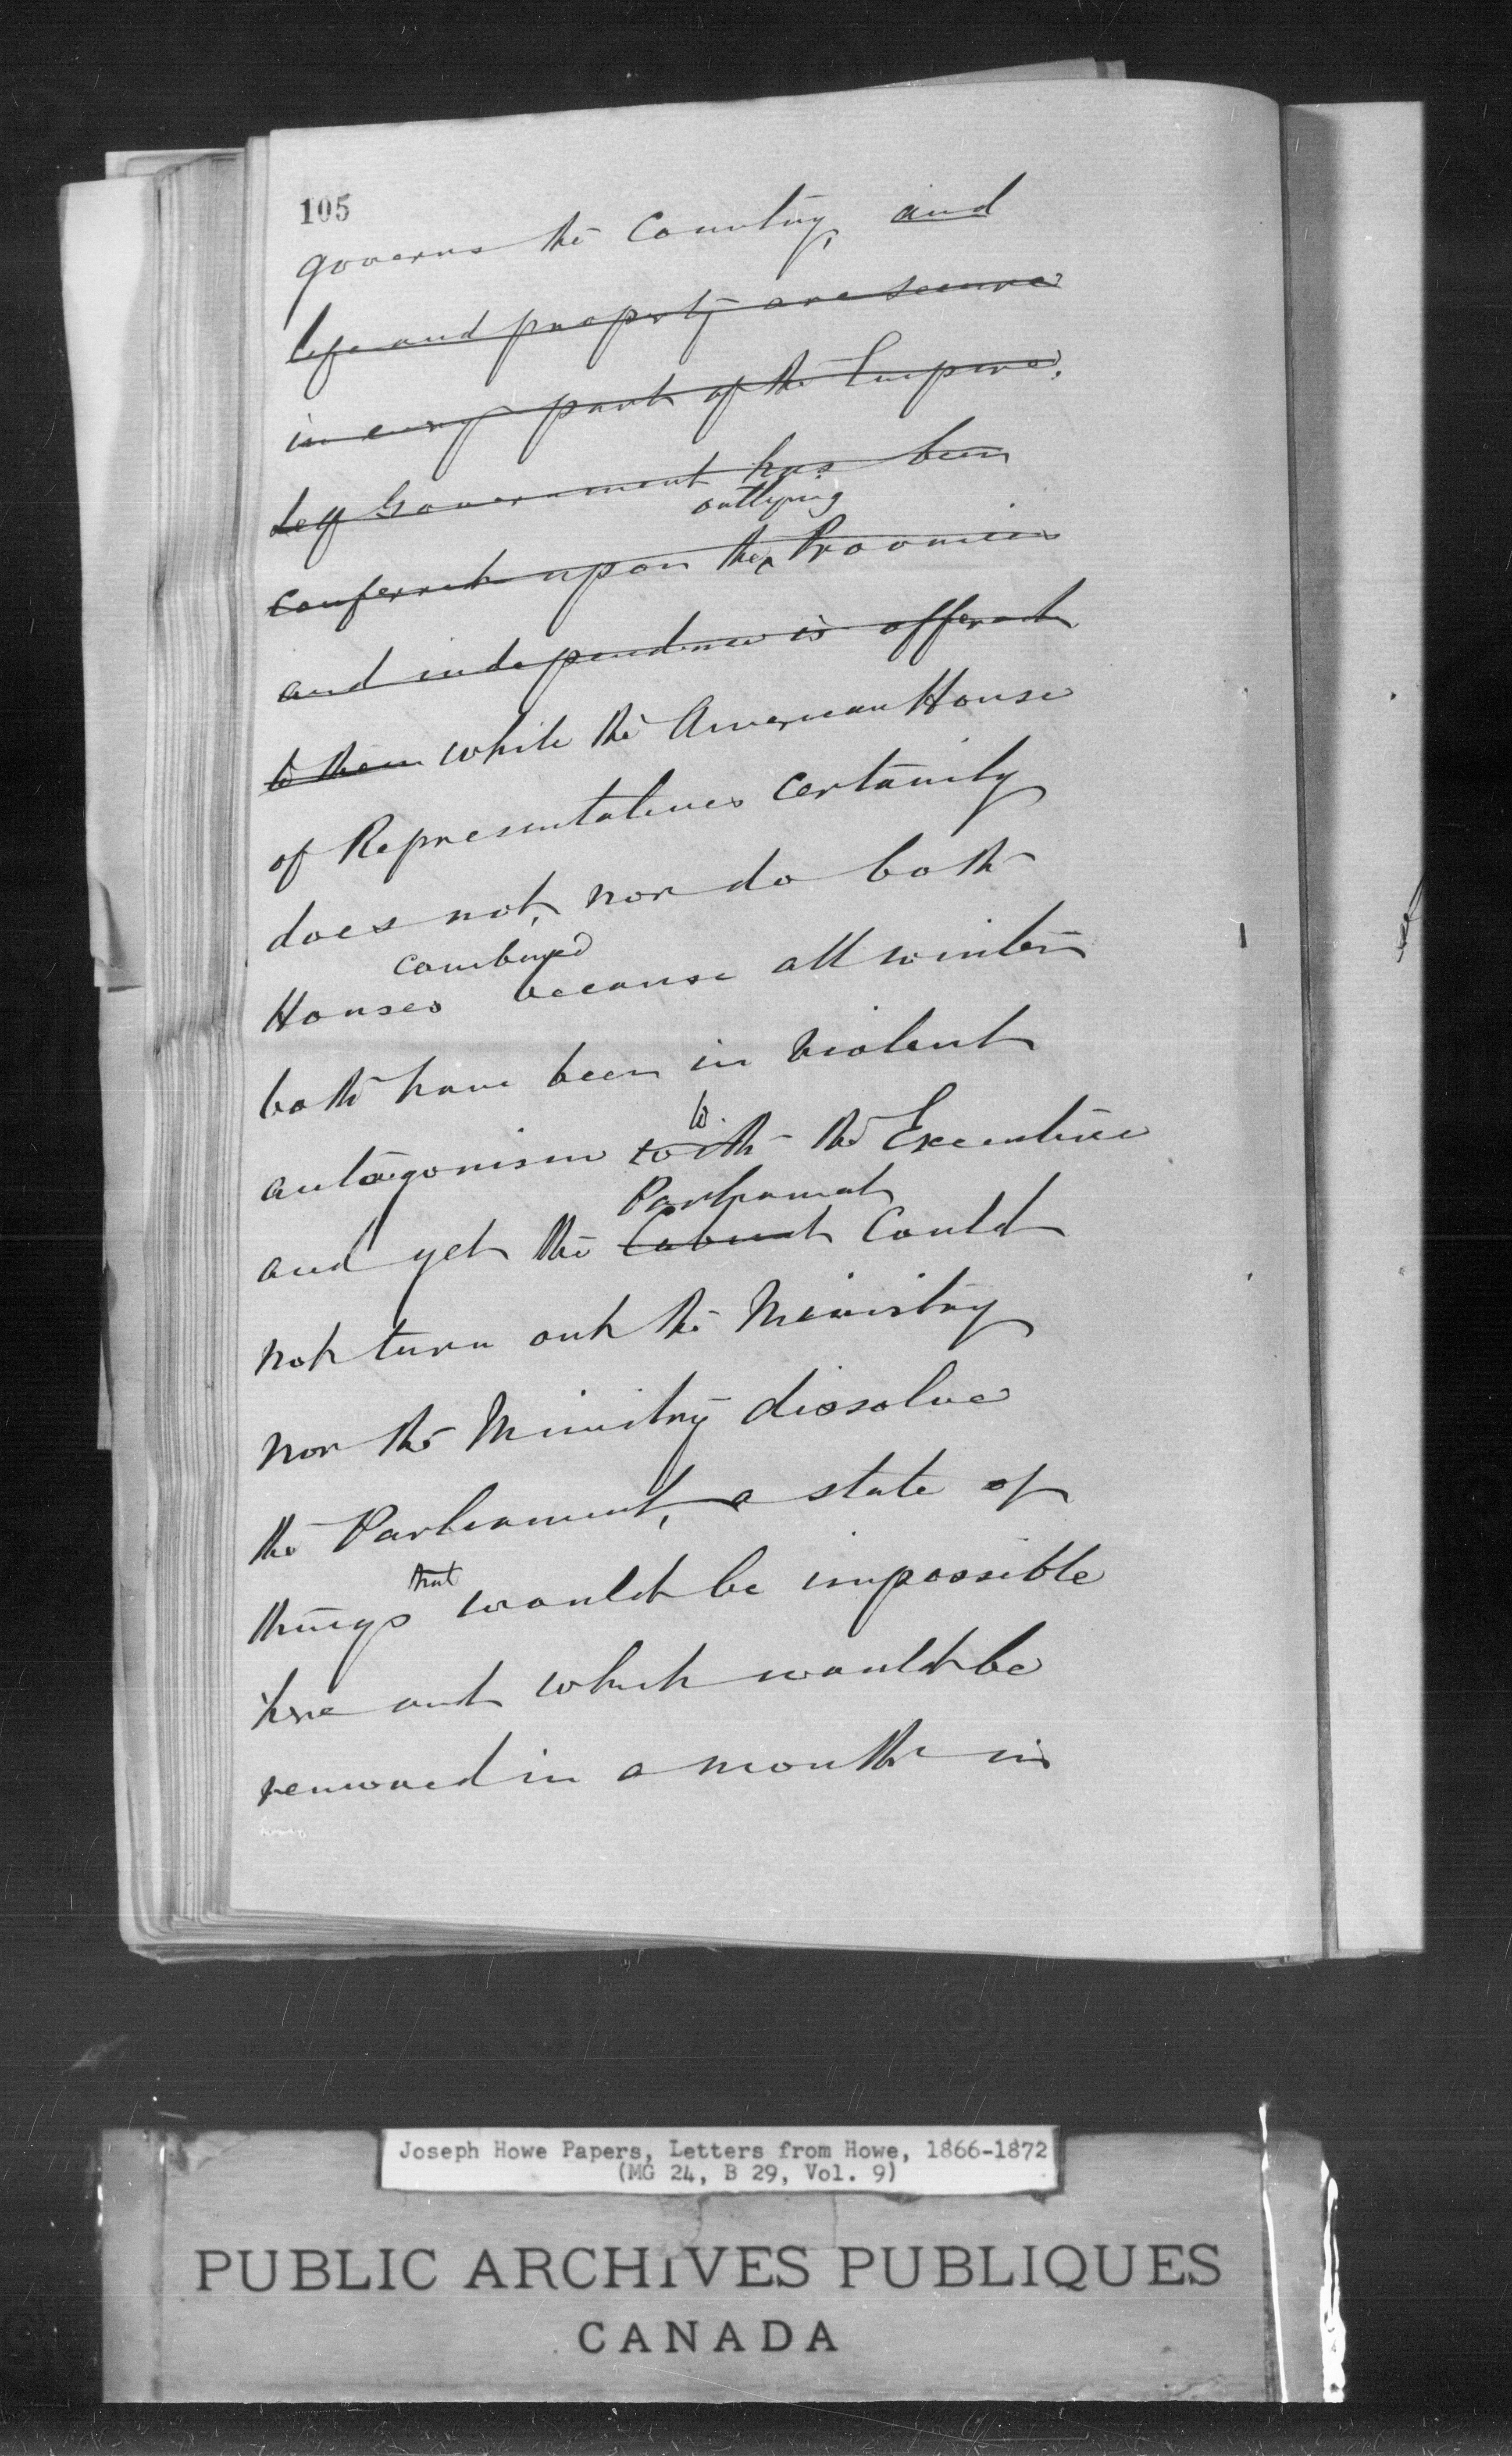 105
governs the Country, and
life and property are secure
in every part of the Empire.
Self Government has been
outlying
conferred upon the Provinces
and independence is offered
to them while the American House
of Representatives certainly
does not, nor do both
combined
Houses because all winter
both have been in violent
to
antagonism with the Executive
Parliament
and yet the Cabinet could
not turn out the Ministry
nor the Ministry dissolve
the Parliament, a state of
that
things would be impossible
here and which would be
removed in a month in
Joseph Howe Papers, Letters from Howe, 1866-1872
(MG 24, B 29, Vol. 9)
PUBLIC ARCHIVES PUBLIQUES
CANADA